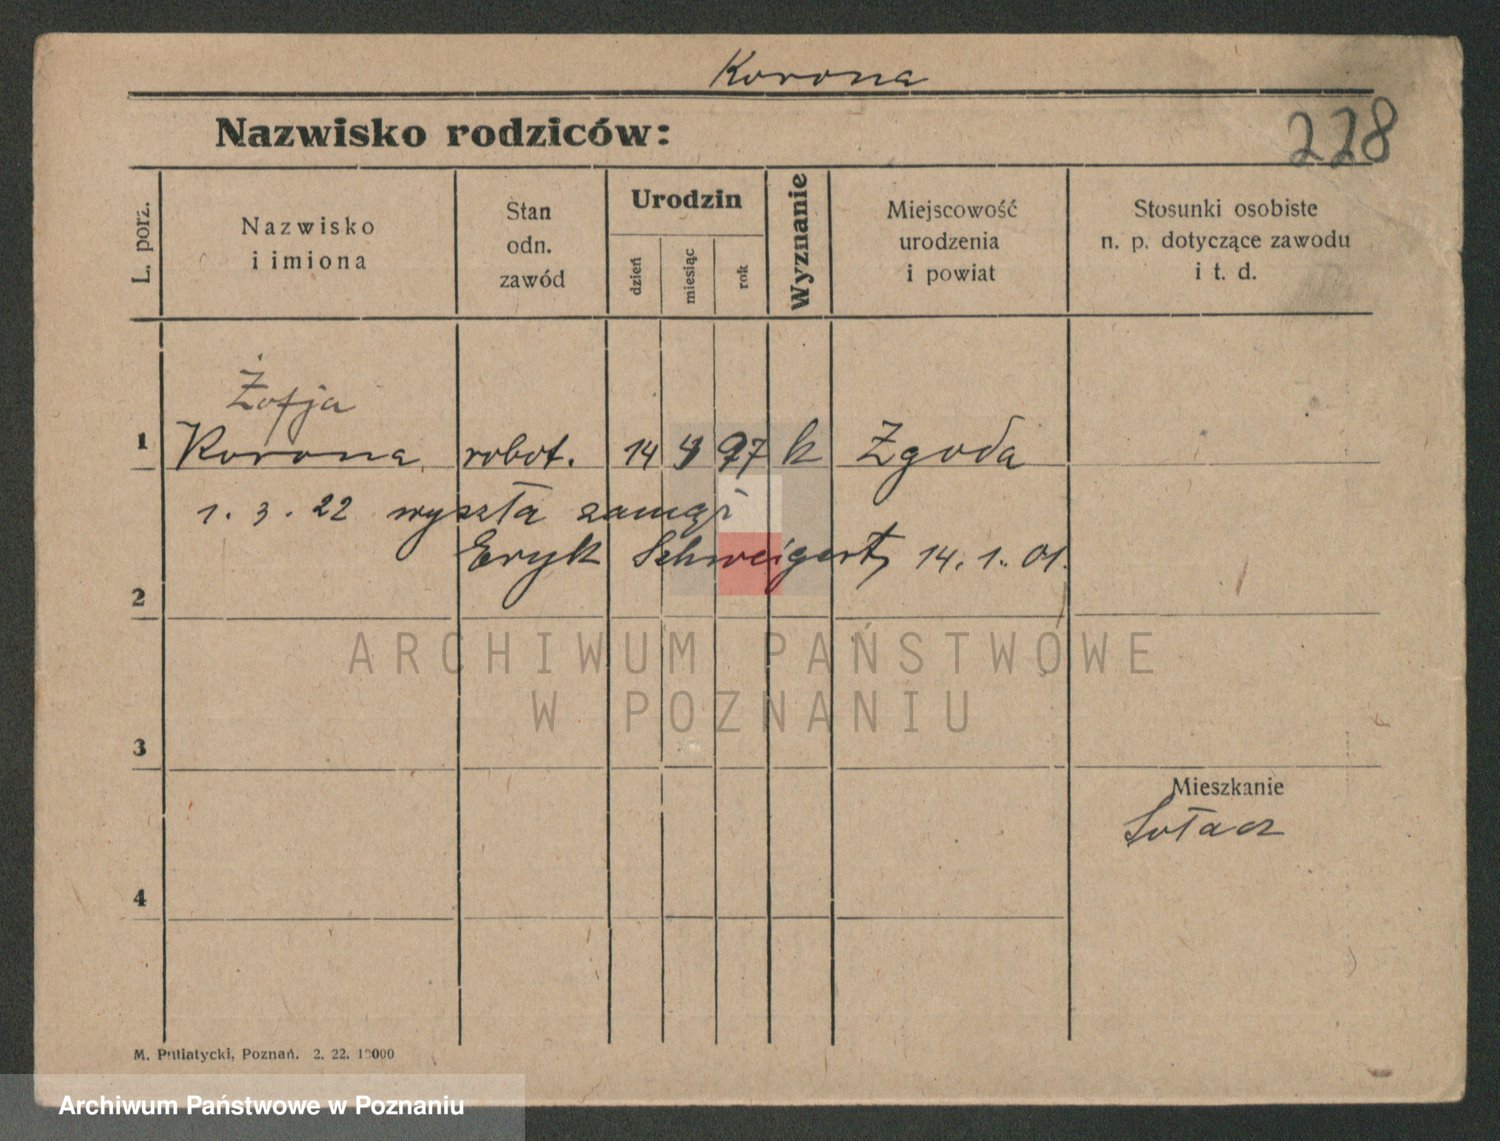 Korona
Nazwisko rodziców:
228
L. porz.
Nazwisko
i imiona
Stan
odn.
zawód
Urodzin
dzień
miesiąc
rok
Wyznanie
Miejscowość
urodzenia
i powiat
Stosunki osobiste
n. p. dotyczące zawodu
i t. d.
Żofja
1 Korona robot. 14 97 k Zgoda
1. 3. 22 wyszła zamąż
Eryk Schweigert, 14. 1. 01.
2
ARCHIWUM PAŃSTWOWE
W POZNANIU
3
Mieszkanie
Sołacz
4
M. Putiatycki, Poznań. 2. 22. 10000
Archiwum Państwowe w Poznaniu